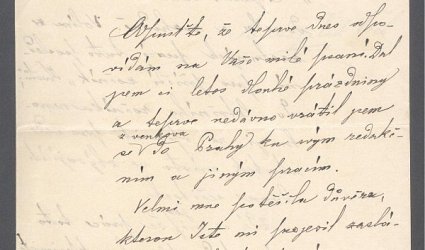 Odpusťte, že teprve dnes odpo-
vídám na Vaše milé psaní. Dal
jsem si letos dlouhé prázdniny
a teprve nedávno vrátil jsem
z venkova
se do Prahy ku svým redakč-
ním a jiným pracím.
Velmi mne potěšila důvěra,
kterou jste mi projevil zaslá-